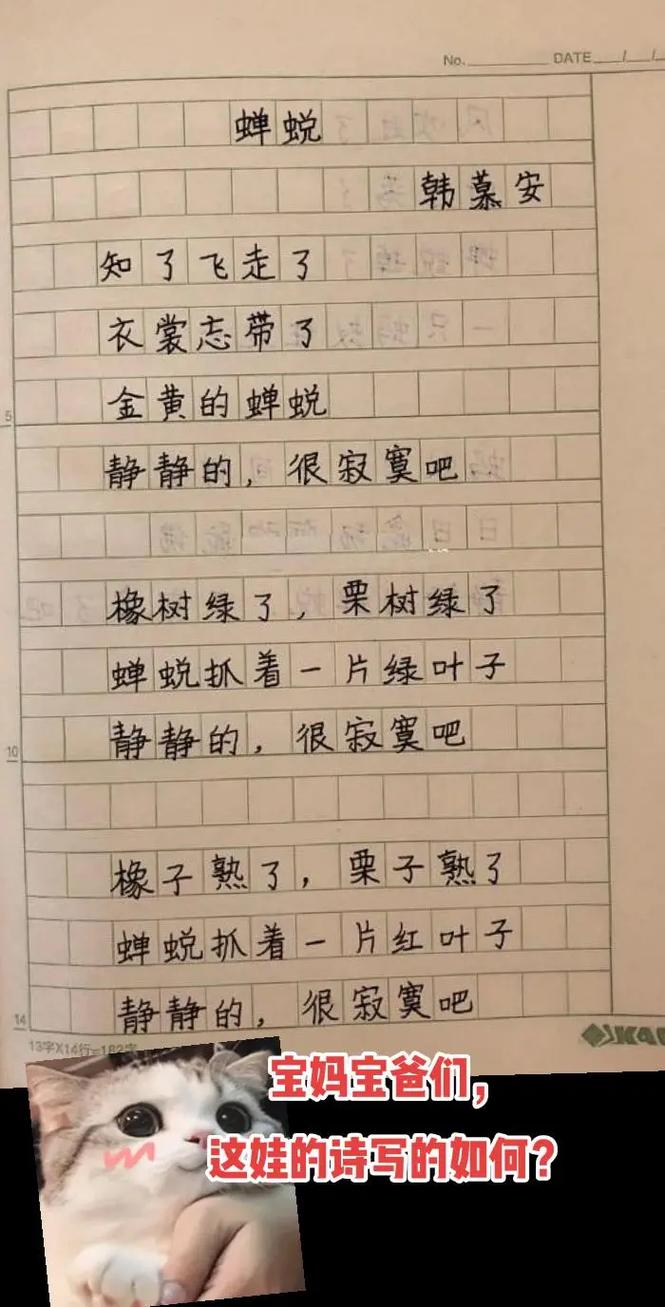 No. DATE / /
蝉蜕
韩慕安
知了飞走了
衣裳志带了
金黄的蝉蜕
静静的，很寂寞吧
橡树绿了，栗树绿了
蝉蜕抓着一片绿叶子
静静的，很寂寞吧
橡子熟了，栗子熟了
蝉蜕抓着一片红叶子
静静的，很寂寞吧
5
10
14
13字X14行=182字
宝妈宝爸们，
这娃的诗写的如何？